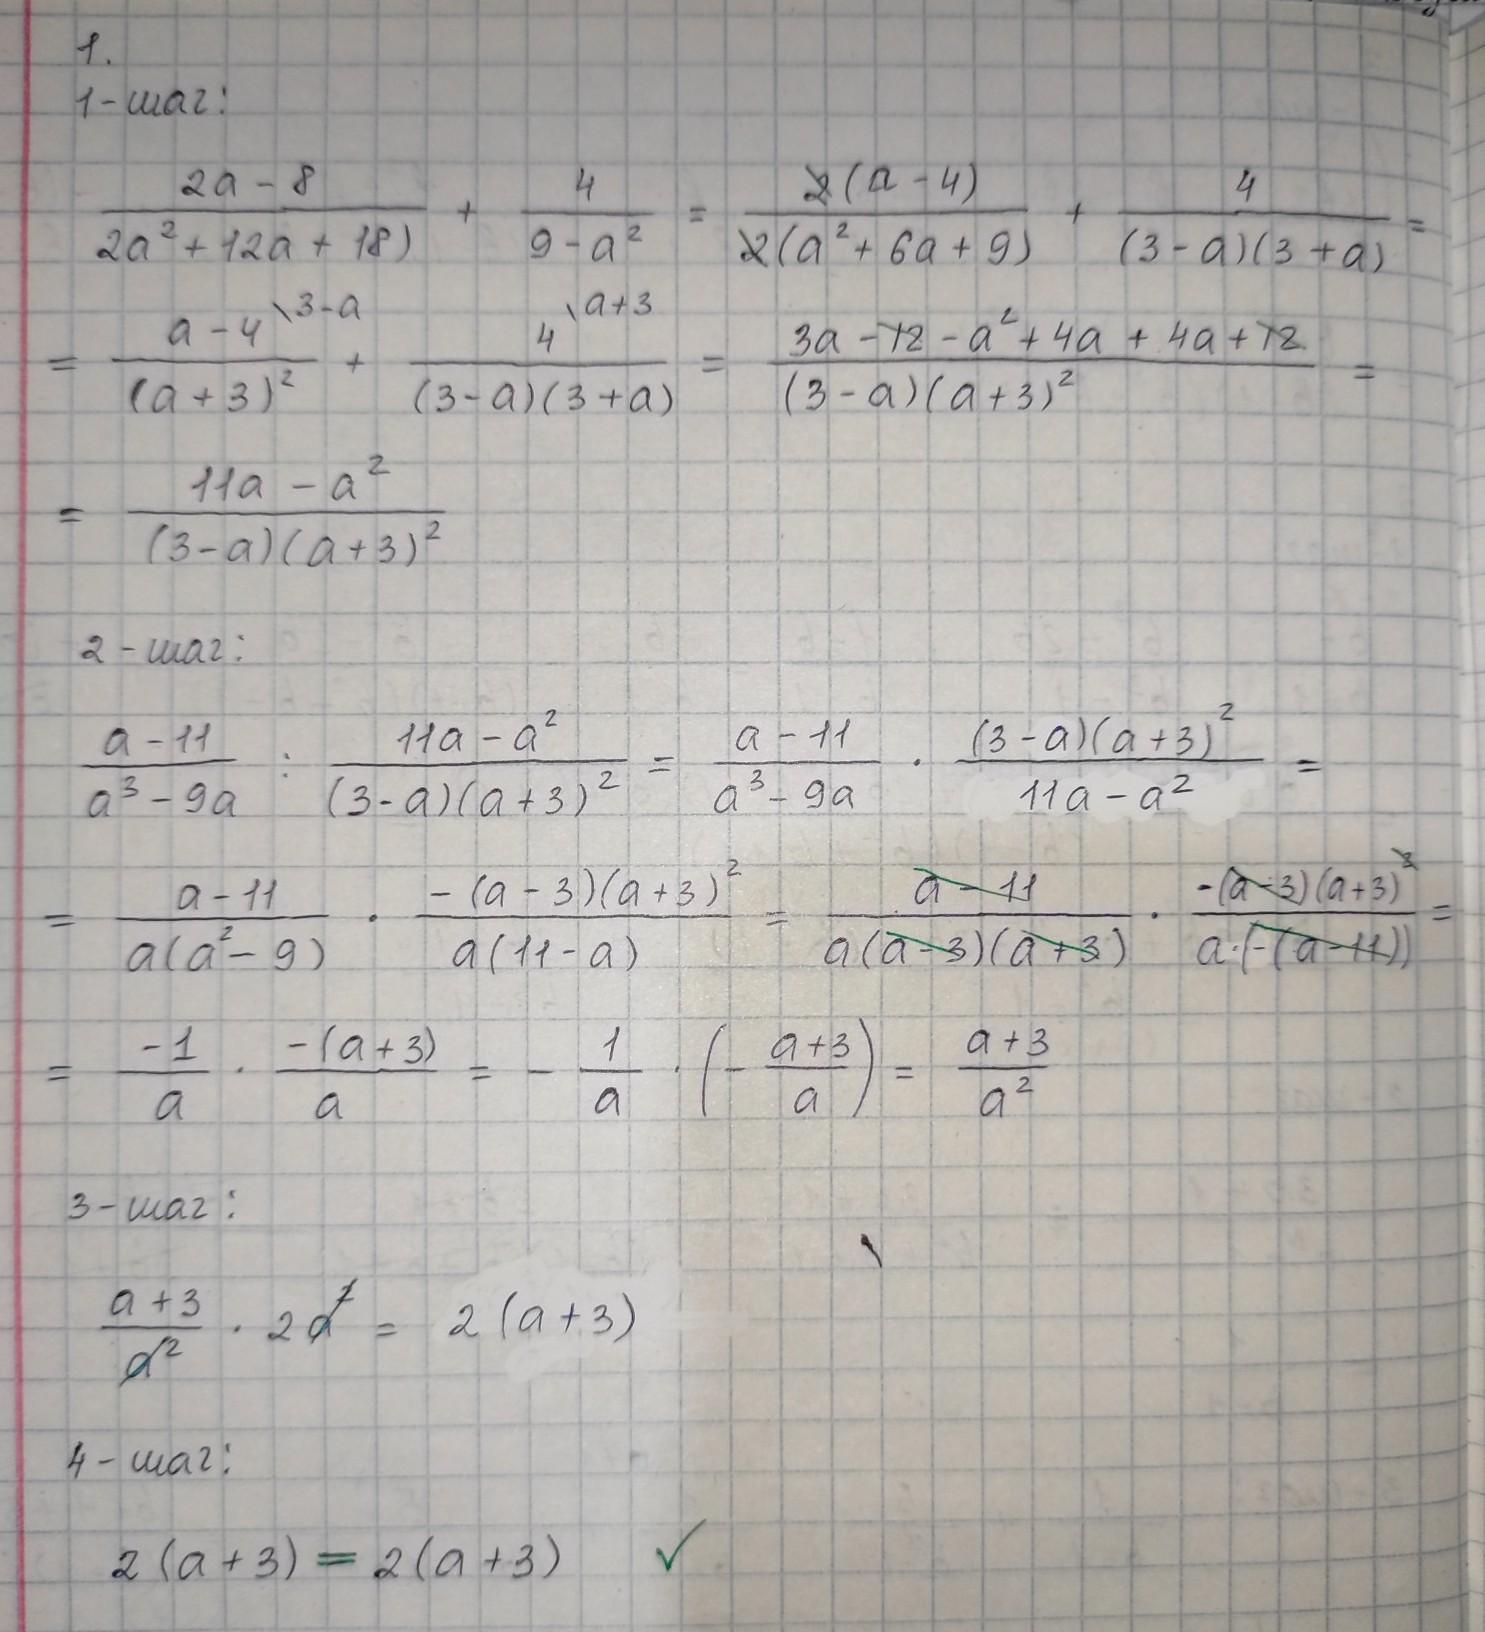 1.
1-шаг:
(2a - 8)/(2a² + 12a + 18) + 4/(9 - a²) = 2(a - 4)/(2(a² + 6a + 9)) + 4/((3 - a)(3 + a)) =
= (a - 4)\3-a/(a + 3)² + 4\a+3/((3 - a)(3 + a)) = (3a - 12 - a² + 4a + 4a + 12)/((3 - a)(a + 3)²) =
= (11a - a²)/((3 - a)(a + 3)²)
2-шаг:
(a - 11)/(a³ - 9a) : (11a - a²)/((3 - a)(a + 3)²) = (a - 11)/(a³ - 9a) · (3 - a)(a + 3)²/(11a - a²) =
= (a - 11)/(a(a² - 9)) · -(a - 3)(a + 3)²/(a(11 - a)) = (a - 11)/(a(a - 3)(a + 3)) · -(a - 3)(a + 3)²/(a·(-(a - 11))) =
= -1/a · -(a + 3)/a = - 1/a · (- (a + 3)/a) = (a + 3)/a²
3-шаг:
(a + 3)/a² · 2a² = 2(a + 3)
4-шаг:
2(a + 3) = 2(a + 3) ✓